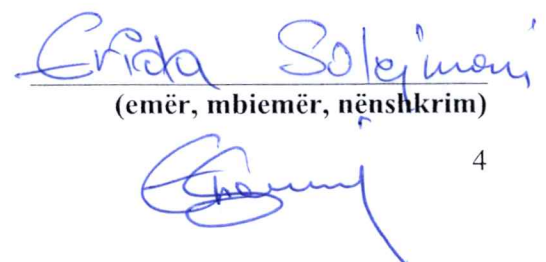 Erida Solejmani
(emër, mbiemër, nënshkrim)
4